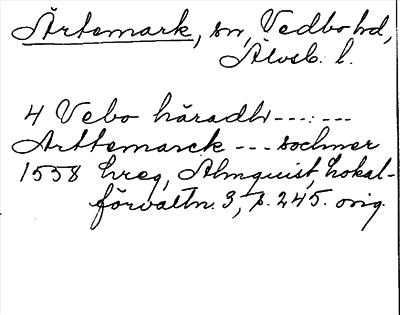 Ärtemark, sn, Vedbo hd,
Älvsb. l.
4 Vebo häradh --- : ---
Arttemarck --- sochner
1558 hreg, Almquist, Lokal-
förvaltn. 3, s. 245. orig.